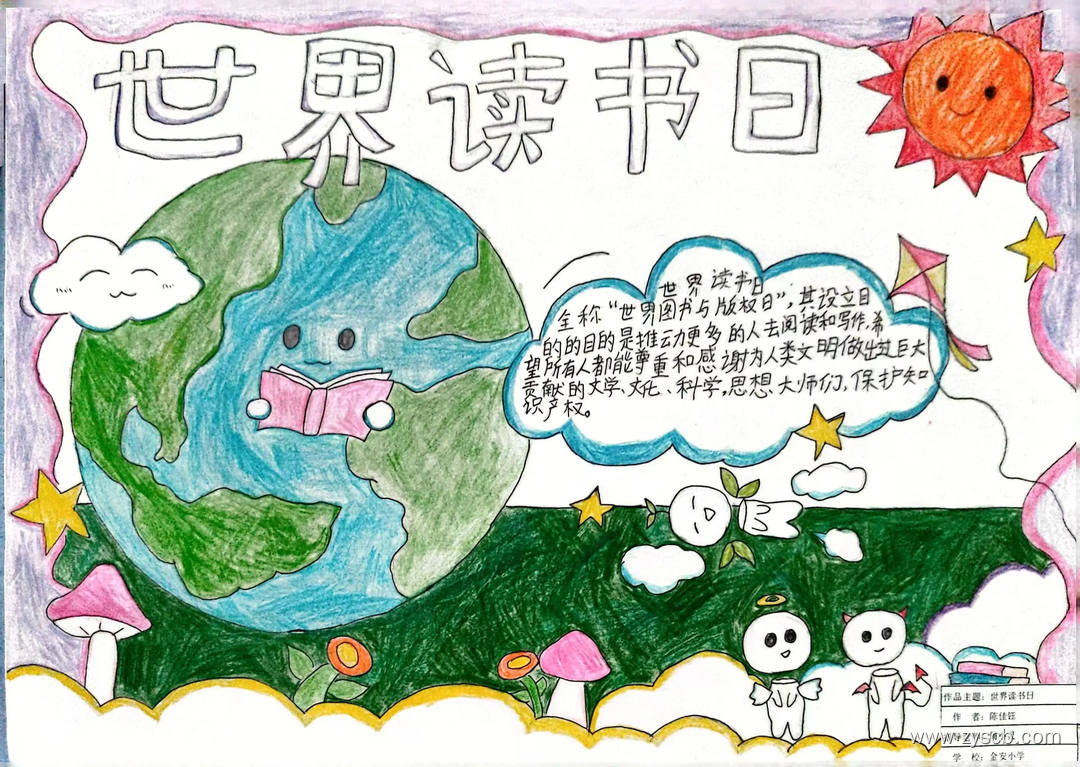 世界读书日
世界读书日
全称“世界图书与版权日”，其设立目
的的目的是推动更多的人去阅读和写作,希
望所有人都能尊重和感谢为人类文明做出过巨大
贡献的文学、文化、科学,思想大师们,保护知
识产权。
作品主题：世界读书日
作 者：陈佳钰
www.zyscb.com
学 校：金安小学